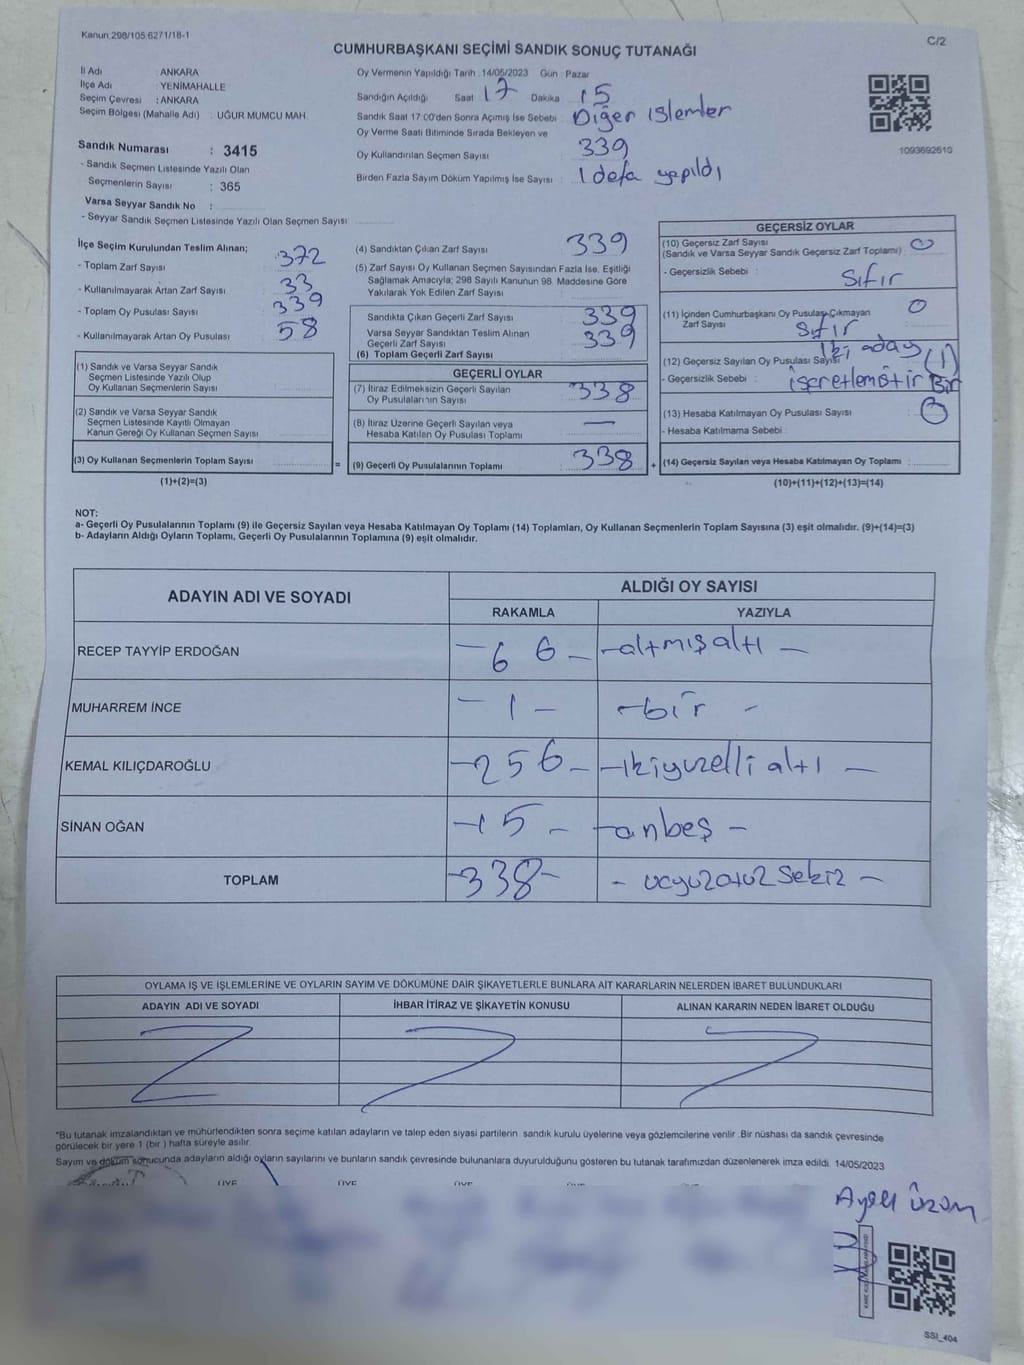 Kanun:298/105,6271/18-1
C/2
CUMHURBAŞKANI SEÇİMİ SANDIK SONUÇ TUTANAĞI
İl Adı : ANKARA
İlçe Adı : YENİMAHALLE
Seçim Çevresi : ANKARA
Seçim Bölgesi (Mahalle Adı) : UĞUR MUMCU MAH.
Sandık Numarası : 3415
- Sandık Seçmen Listesinde Yazılı Olan
Seçmenlerin Sayısı : 365
Varsa Seyyar Sandık No :
- Seyyar Sandık Seçmen Listesinde Yazılı Olan Seçmen Sayısı:
Oy Vermenin Yapıldığı Tarih : 14/05/2023 Gün : Pazar
Sandığın Açıldığı Saat 17 Dakika 15
Sandık Saat 17.00'den Sonra Açımış İse Sebebi : Diğer işlemler
Oy Verme Saati Bitiminde Sırada Bekleyen ve
Oy Kullandırılan Seçmen Sayısı : 339
Birden Fazla Sayım Döküm Yapılmış İse Sayısı : 1 defa yapıldı
1093692610
İlçe Seçim Kurulundan Teslim Alınan;
- Toplam Zarf Sayısı : 372
- Kullanılmayarak Artan Zarf Sayısı : 33
- Toplam Oy Pusulası Sayısı : 339
- Kullanılmayarak Artan Oy Pusulası : 58
(1) Sandık ve Varsa Seyyar Sandık
Seçmen Listesinde Yazılı Olup
Oy Kullanan Seçmenlerin Sayısı :
(2) Sandık ve Varsa Seyyar Sandık
Seçmen Listesinde Kayıtlı Olmayan
Kanun Gereği Oy Kullanan Seçmen Sayısı :
(3) Oy Kullanan Seçmenlerin Toplam Sayısı :
(1)+(2)=(3)
(4) Sandıktan Çıkan Zarf Sayısı : 339
(5) Zarf Sayısı Oy Kullanan Seçmen Sayısından Fazla İse, Eşitliği
Sağlamak Amacıyla; 298 Sayılı Kanunun 98. Maddesine Göre
Yakılarak Yok Edilen Zarf Sayısı :
Sandıkta Çıkan Geçerli Zarf Sayısı : 339
Varsa Seyyar Sandıktan Teslim Alınan
Geçerli Zarf Sayısı : 339
(6) Toplam Geçerli Zarf Sayısı :
GEÇERLİ OYLAR
(7) İtiraz Edilmeksizin Geçerli Sayılan
Oy Pusulalarının Sayısı : 338
(8) İtiraz Üzerine Geçerli Sayılan veya
Hesaba Katılan Oy Pusulası Toplamı : —
= (9) Geçerli Oy Pusulalarının Toplamı : 338 +
GEÇERSİZ OYLAR
(10) Geçersiz Zarf Sayısı : 0
(Sandık ve Varsa Seyyar Sandık Geçersiz Zarf Toplamı)
- Geçersizlik Sebebi : Sıfır
(11) İçinden Cumhurbaşkanı Oy Pusulası Çıkmayan
Zarf Sayısı : 0 Sıfır
(12) Geçersiz Sayılan Oy Pusulası Sayısı : İki aday (1)
- Geçersizlik Sebebi : işaretlemiştir Bir
(13) Hesaba Katılmayan Oy Pusulası Sayısı :
- Hesaba Katılmama Sebebi :
(14) Geçersiz Sayılan veya Hesaba Katılmayan Oy Toplamı :
(10)+(11)+(12)+(13)=(14)
NOT:
a- Geçerli Oy Pusulalarının Toplamı (9) ile Geçersiz Sayılan veya Hesaba Katılmayan Oy Toplamı (14) Toplamları, Oy Kullanan Seçmenlerin Toplam Sayısına (3) eşit olmalıdır. (9)+(14)=(3)
b- Adayların Aldığı Oyların Toplamı, Geçerli Oy Pusulalarının Toplamına (9) eşit olmalıdır.
ADAYIN ADI VE SOYADI ALDIĞI OY SAYISI
RAKAMLA YAZIYLA
RECEP TAYYİP ERDOĞAN - 66 - - altmışaltı -
MUHARREM İNCE - 1 - - bir -
KEMAL KILIÇDAROĞLU - 256 - - ikiyüzelli altı -
SİNAN OĞAN - 15 - - onbeş -
TOPLAM - 338 - - üçyüzotuz sekiz -
OYLAMA İŞ VE İŞLEMLERİNE VE OYLARIN SAYIM VE DÖKÜMÜNE DAİR ŞİKAYETLERLE BUNLARA AİT KARARLARIN NELERDEN İBARET BULUNDUKLARI
ADAYIN ADI VE SOYADI İHBAR İTİRAZ VE ŞİKAYETİN KONUSU ALINAN KARARIN NEDEN İBARET OLDUĞU
"Bu tutanak imzalandıktan ve mühürlendikten sonra seçime katılan adayların ve talep eden siyasi partilerin sandık kurulu üyelerine veya gözlemcilerine verilir. Bir nüshası da sandık çevresinde
görülecek bir yere 1 (bir) hafta süreyle asılır.
Sayım ve döküm sonucunda adayların aldığı oyların sayılarını ve bunların sandık çevresinde bulunanlara duyurulduğunu gösteren bu tutanak tarafımızdan düzenlenerek imza edildi. 14/05/2023
ÜYE ÜYE ÜYE
SSI_404